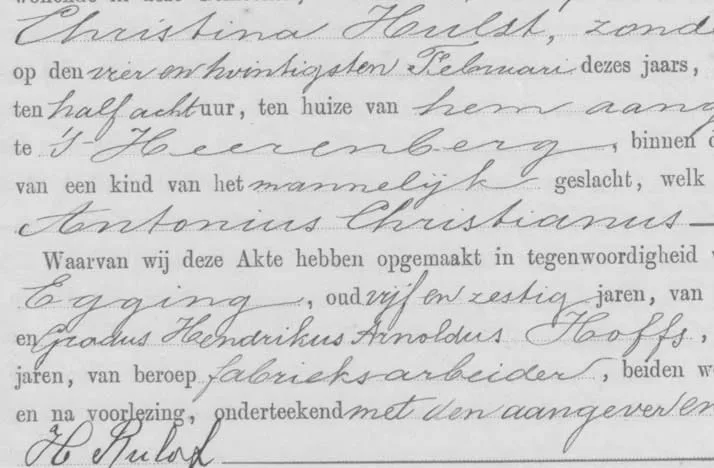 Christina Hulst, zond
op den vier en twintigsten Februari dezes jaars,
ten half acht uur, ten huize van hem aang
te 's Heerenberg, binnen d
van een kind van het mannelijk geslacht, welk
Antonius Christianus
Waarvan wij deze Akte hebben opgemaakt in tegenwoordigheid
Egging, oud vijf en zestig jaren, van
en Gradus Hendrikus Arnoldus Hoffs,
jaren, van beroep fabrieksarbeider, beiden w
en na voorlezing, onderteekend met den aangever en
H Rulof